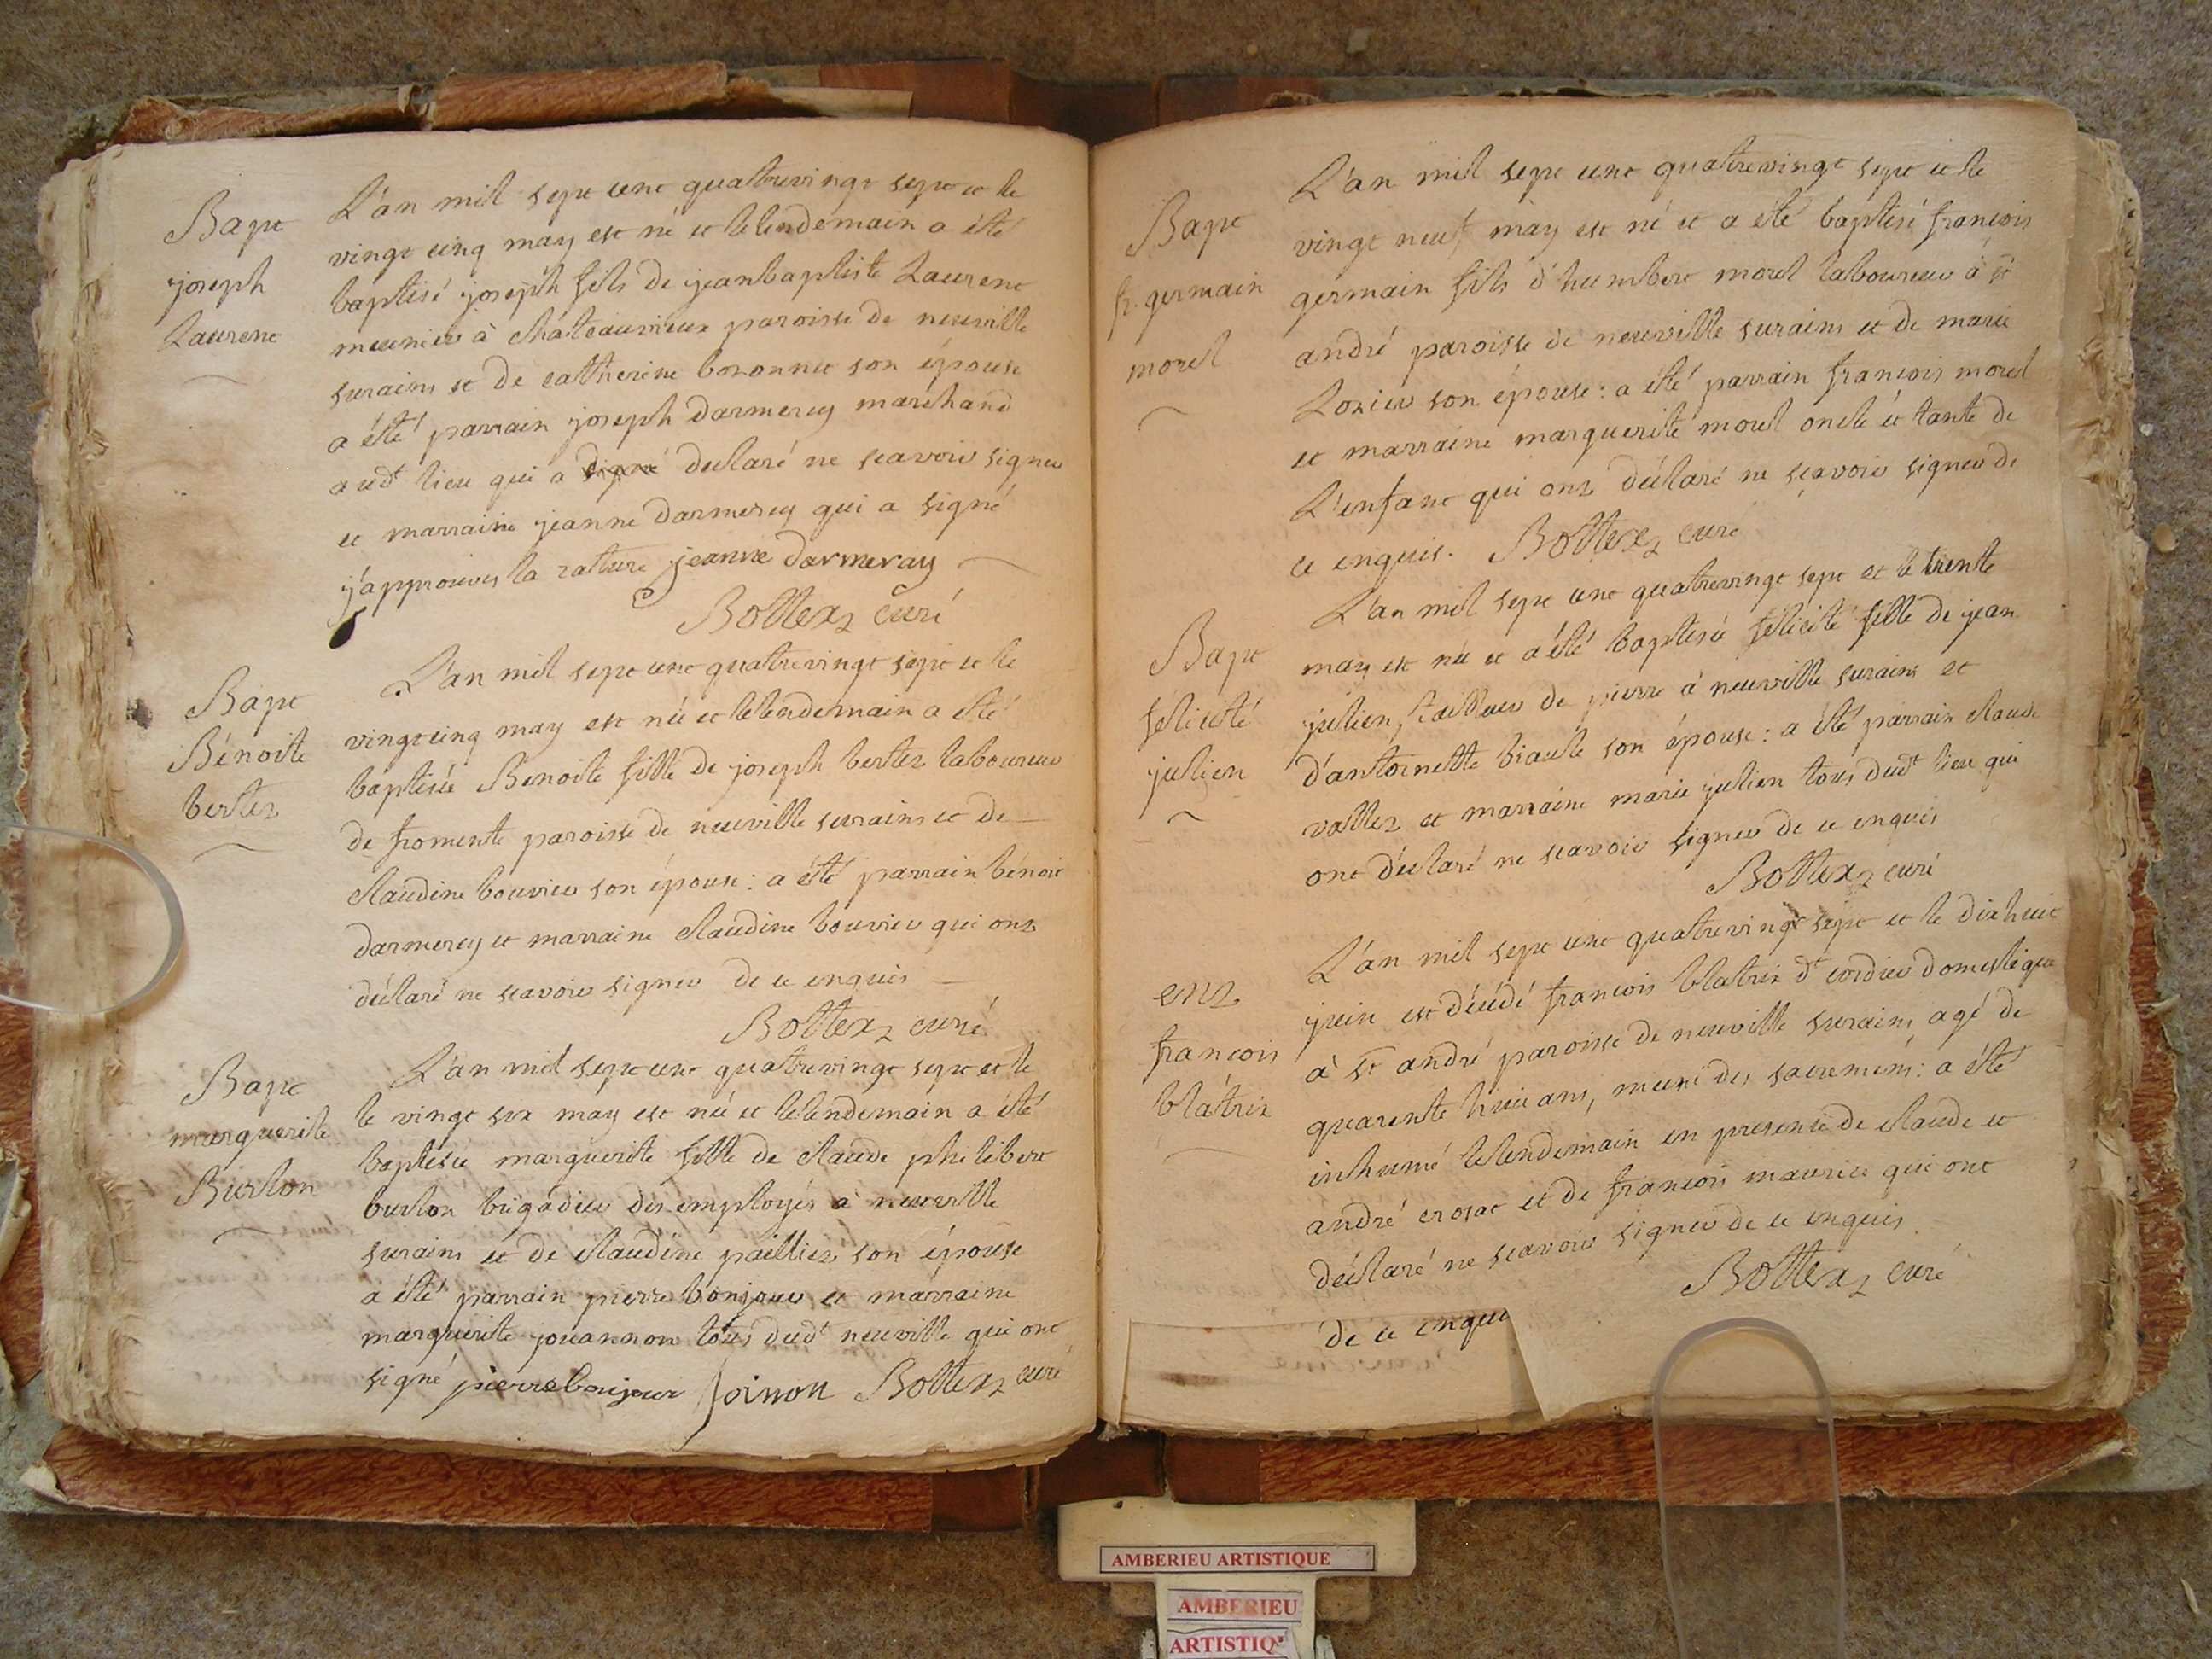 Bapt
joseph
Laurent
L'an mil sept cent quatrevingt sept et le
vingt cinq may est né et le lendemain a été
baptisé joseph fils de jeanbaptiste Laurent
meunier à châteauvieux paroisse de neuville
surains et de catherine bononne son épouse
a été parrain joseph darmerey marchand
audt lieu qui a signé déclaré ne scavoir signer
et marraine jeanne darmerey qui a signé
j'approuves la rature jeanne darmeray
Bottex curé
Bapt
Bénoite
bertez
L'an mil sept cent quatrevingt sept et le
vingt cinq may est née et le lendemain a été
baptisée Benoite fille de joseph bertez laboureur
de fromente paroisse de neuville surains et de
Claudine bouvier son épouse : a été parrain bénoit
darmerey et marraine Claudine bouvier qui ont
déclaré ne scavoir signer de ce enquis
Bottex curé
Bapt
marguerite
Burlon
L'an mil sept cent quatrevingt sept et le
le vingt six may est née et le lendemain a été
baptisée marguerite fille de claude philibert
burlon brigadier des employés à neuville
surains et de Claudine paillier son épouse
a été parrain pierre bonjour et marraine
marguerite jouannon tous dudt neuville qui ont
signé pierre bonjour joinon Bottex curé
Bapt
fr. germain
morel
L'an mil sept cent quatrevingt sept et le
vingt neuf may est né et a été baptisé françois
germain fils d'humbert morel laboureur à st
andré paroisse de neuville surains et de marie
Lorier son épouse : a été parrain françois morel
et marraine marguerite morel oncle et tante de
L'enfant qui ont déclaré ne scavoir signer de
ce enquis. Bottex curé
Bapt
félicité
julien
L'an mil sept cent quatrevingt sept et le trente
may est née et a été baptisée félicité fille de jean
julien, tailleur de pierre à neuville surains et
d'antoinette biaule son épouse : a été parrain claude
vallez et marraine marie julien tous dudt lieu qui
ont déclaré ne scavoir signer de ce enquis
Bottex curé
ent
françois
blâtrix
L'an mil sept cent quatrevingt sept et le dixhuit
juin est décédé françois blatrix dt cordier domestique
à st andré paroisse de neuville surains agé de
quarente huit ans, muni des sacremens : a été
inhumé le lendemain en presence de claude et
andré crozat et de françois maurice qui ont
déclaré ne scavoir signer de ce enquis
Bottex curé
de ce enquis
AMBERIEU ARTISTIQUE
AMBERIEU
ARTISTIQ